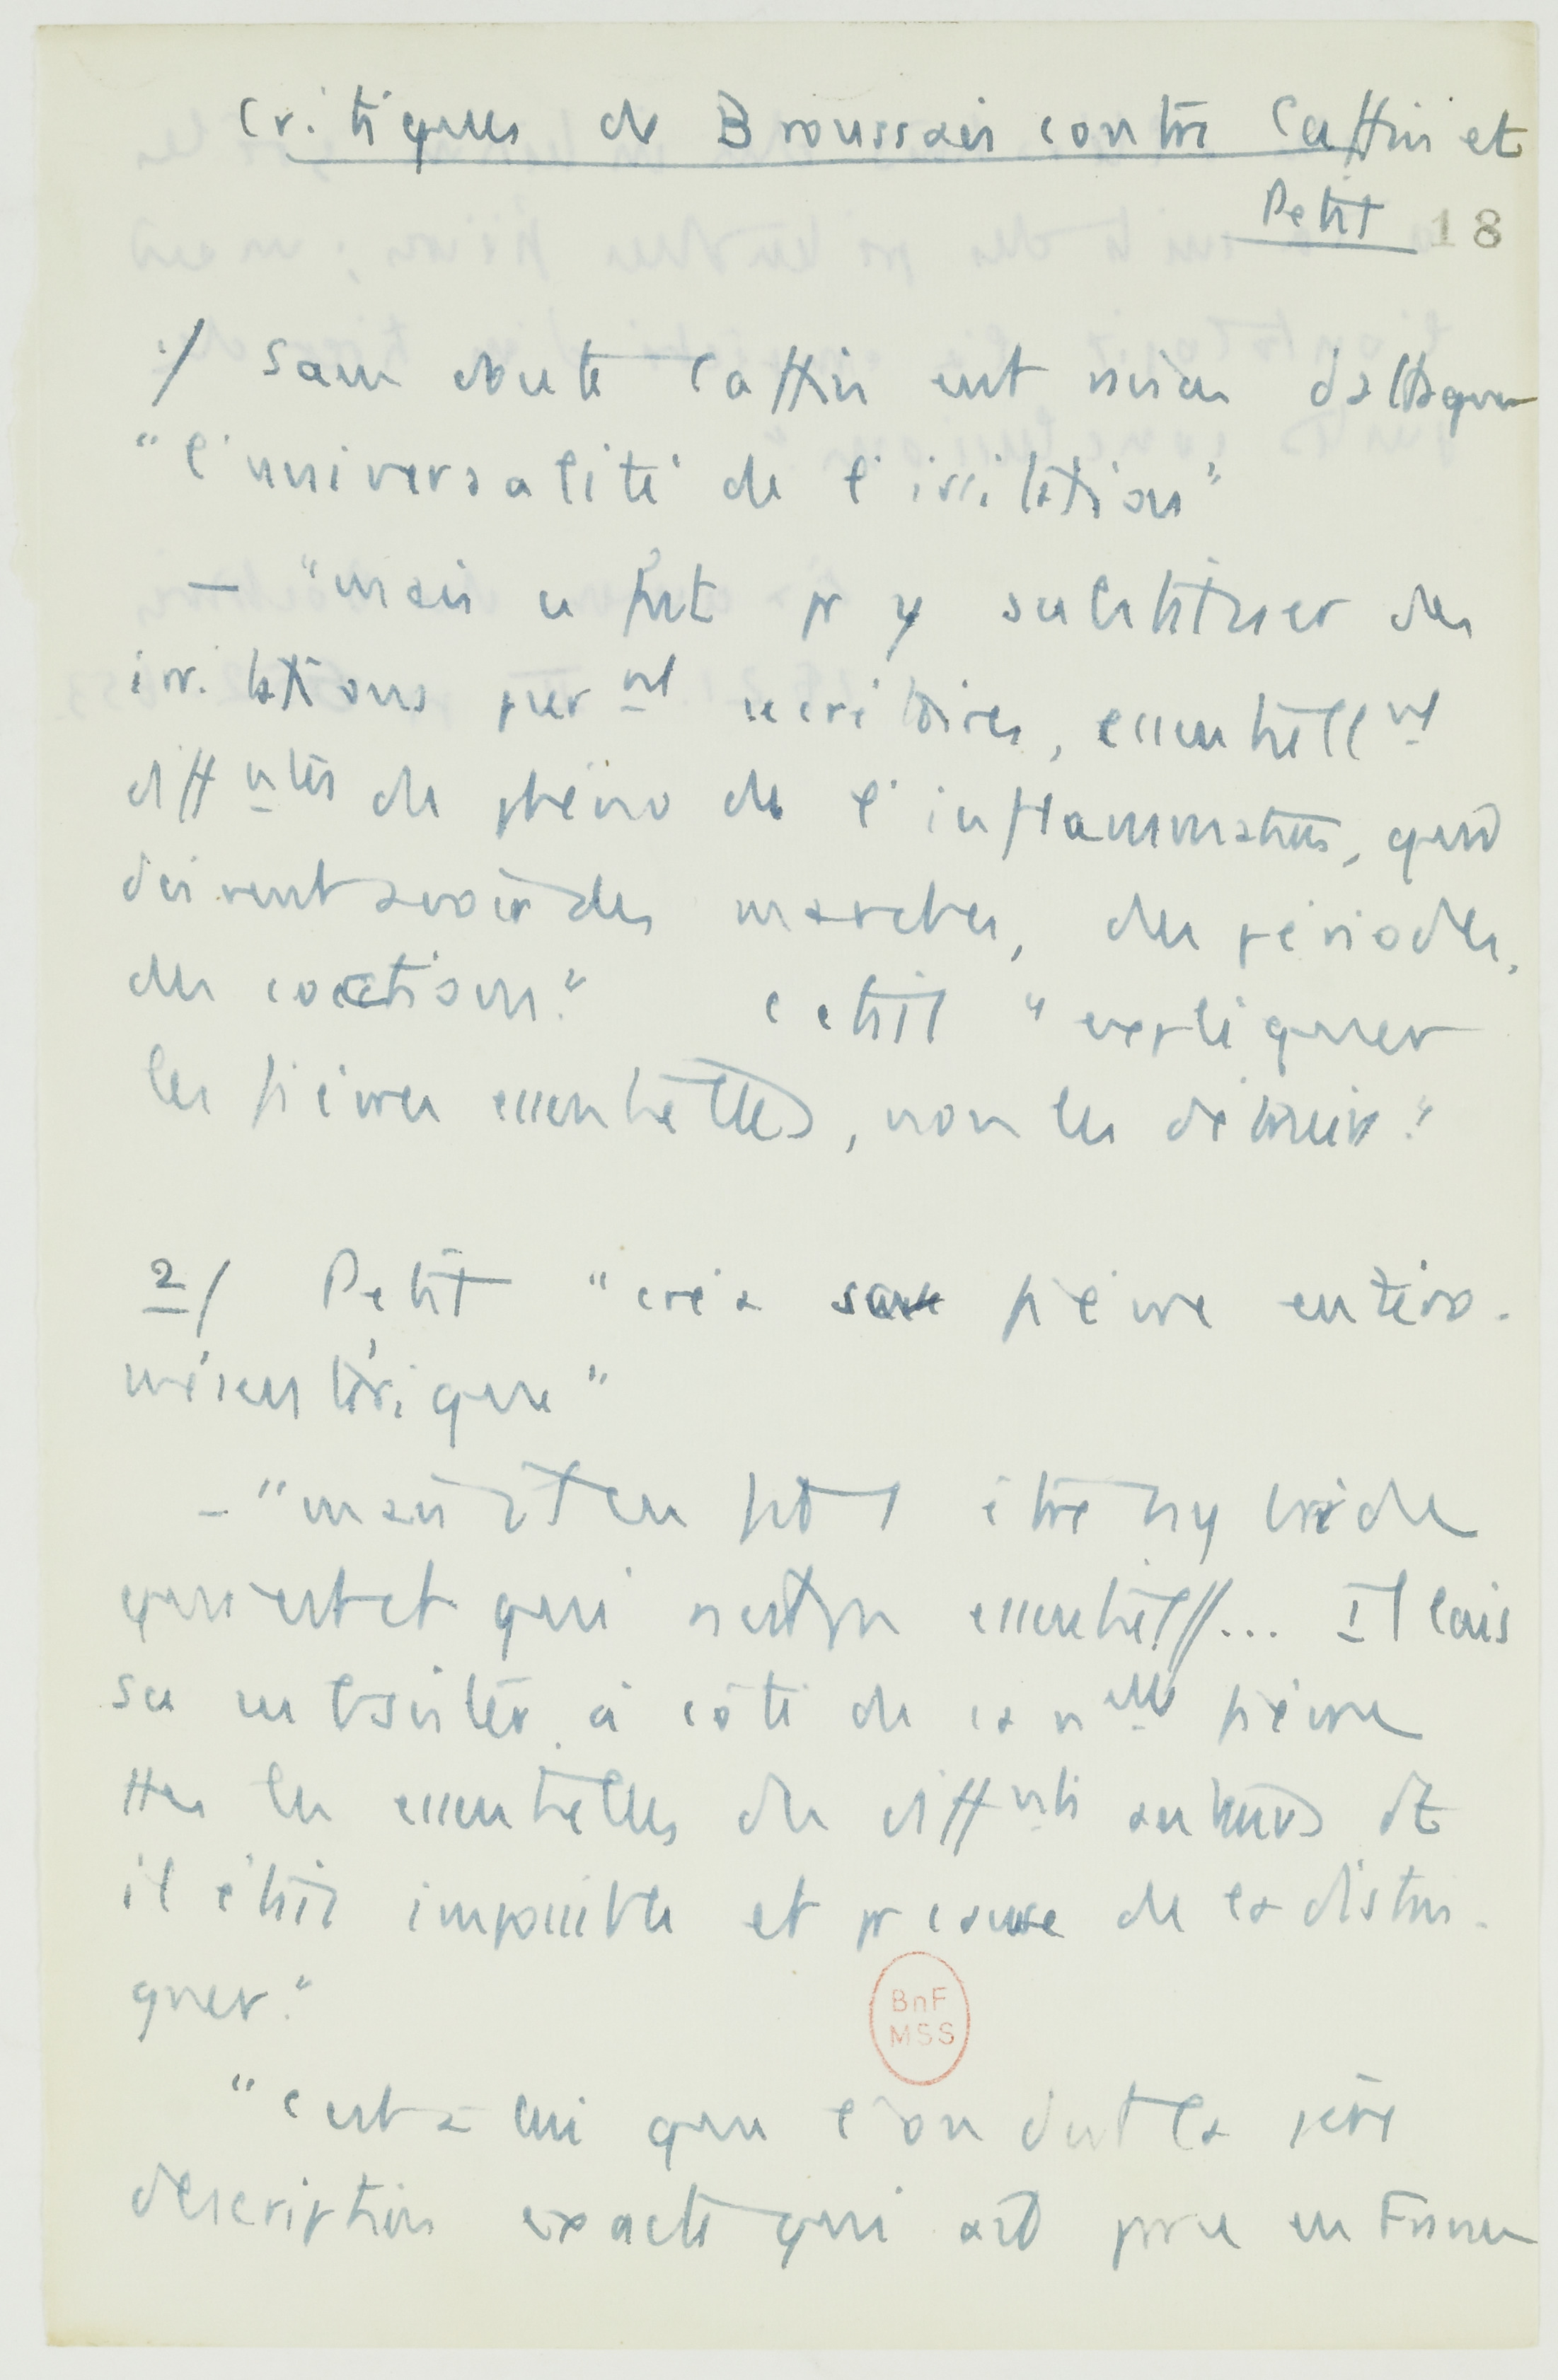 Critiques de Broussais contre Caffin et
Petit 18
1/ Sans doute Caffin eut raison d'attaquer
"l'universalité de l'irritation"
– "mais ce fut pr y substituer des
irritations purnt sécrétoires, essentiellnt
diffntes de phéno de l'inflammation, qui
doivent avoir des marches, des périodes,
des coctions." C'était "expliquer
les fièvres essentielles, non les détruire."
2/ Petit "créa sa fièvre entéro-
mésentérique"
– "mais être hybride
qui est et qui n'est pas essentielle... Il lais
sa subsister à côté de sa nlle fièvre
ttes les essentielles des diffnts auteurs dt
il était impossible et pr cause de la distin-
guer."
"C'est à lui que l'on dut la 1ère
description exacte qui ait paru en France
BnF
MSS